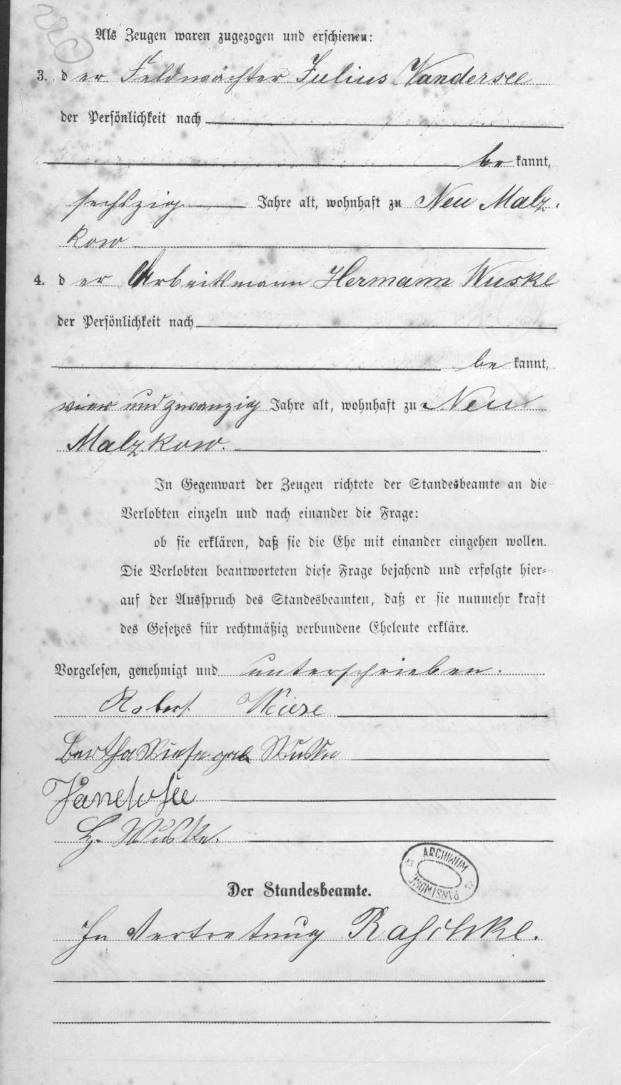 Als Zeugen waren zugezogen und erschienen:
3. d er Feldwächter Julius Vandersee
der Persönlichkeit nach
be kannt,
sechszig Jahre alt, wohnhaft zu Neu Malz-
kow
4. d er Arbeitsmann Hermann Wuske
der Persönlichkeit nach
be kannt,
vier und zwanzig Jahre alt, wohnhaft zu Neu
Malzkow.
In Gegenwart der Zeugen richtete der Standesbeamte an die
Verlobten einzeln und nach einander die Frage:
ob sie erklären, daß sie die Ehe mit einander eingehen wollen.
Die Verlobten beantworteten diese Frage bejahend und erfolgte hier-
auf der Ausspruch des Standesbeamten, daß er sie nunmehr kraft
des Gesetzes für rechtmäßig verbundene Eheleute erkläre.
Vorgelesen, genehmigt und unterschrieben.
Robert
Bertha geb. Wuske
H. Wuske.
ARCHIWUM PAŃSTWOWE
Der Standesbeamte.
In Vertretung Raschke.